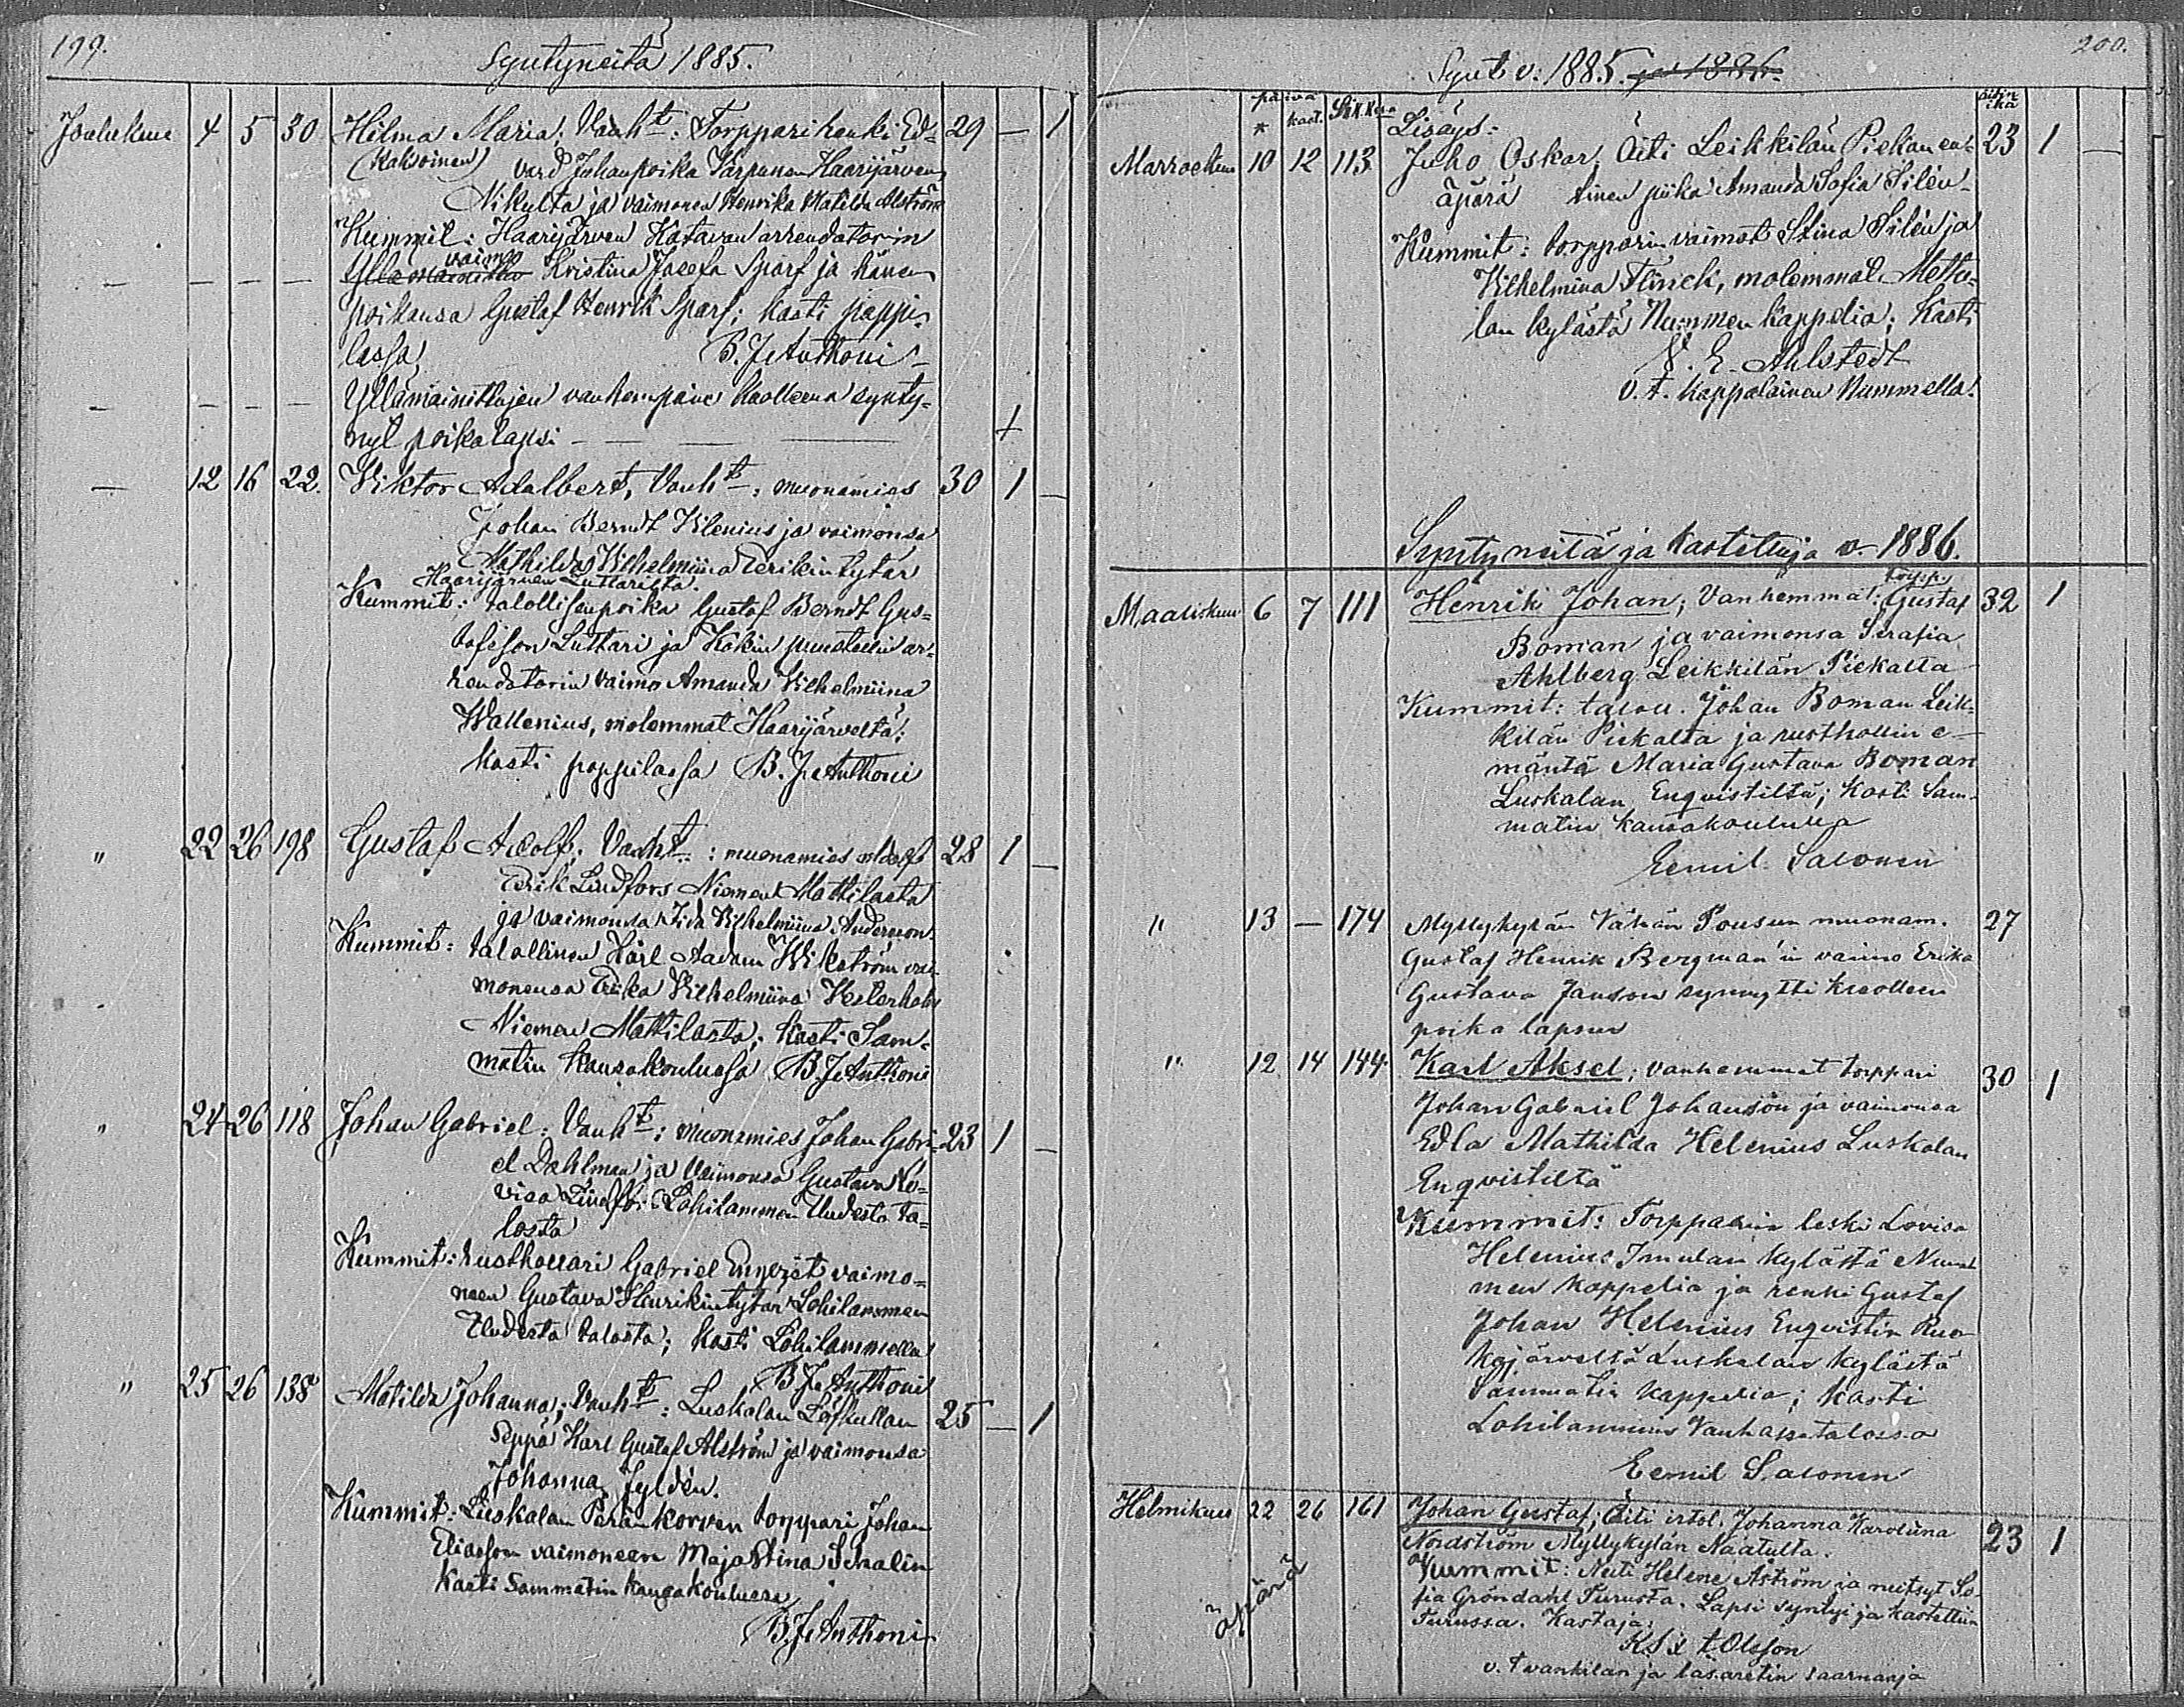 199.
Syntyneitä 1885.
Joulukuu 4 5 30 Hilma Maria; Vanht: Torpparihenki Ed- 29 — 1
(Kaksoinen) vard Johanpoika Karpunen Haarijärven
Nikulta ja vaimonsa Henrika Matilda Alström
Kummit: Haarijärven Katavan arrendatorin
— — — — Yllämainittu vaimo Kristina Josefa Sparf ja hänen
poikansa Gustaf Henrik Sparf; kasti pappi-
lassa, B. J. Anthoni
— — — — Yllämainittujen vanhempain kuolleena synty-
nyt poikalapsi — — — — +
— 12 16 22. Viktor Adalbert, Vanht: muonamies 30 1 —
Johan Berndt Vilenius ja vaimonsa
Mathilda Vilhelmiina Eerikintytär
Haarijärven Luttarista.
Kummit: talollisenpoika Gustaf Berndt Gus-
tafsson Luttari ja Kokin puustellin ar-
rendatorin vaimo Amanda Vilhelmiina
Wallenius, molemmat Haarijärveltä;
kasti pappilassa B. J. Anthoni
" 22 26 198 Gustaf Adolf; Vanht: muonamies Adolf 28 1 —
Erik Lindfors Niemen Mattilasta
ja vaimonsa Ida Vilhelmiina Anderson.
Kummit: talollinen Karl Aadam Wikström vai-
monensa Erika Vilhelmiina
Niemen Mattilasta; kasti Sam-
matin kansakoulussa B. J. Anthoni
" 24 26 118 Johan Gabriel: Vanht: muonamies Johan Gabri- 23 1 —
el Dahlman ja vaimonsa Gustava Lo-
visa Lindfors Lohilammen Uudesta ta-
losta
Kummit: rusthollari Gabriel Enqvist vaimo-
neen Gustava Henrikintytär Lohilammen
Uudesta talosta; kasti Lohilammella
B. J. Anthoni
" 25 26 138 Matilda Johanna; Vanht: Luskalan Löfkullan 25 — 1
seppä Karl Gustaf Alström ja vaimonsa
Johanna Fyldén.
Kummit: Luskalan Peränkorven torppari Johan
Eliasson vaimoneen Maja Stina Schalin
Kasti Sammatin kansakoulussa
B. J. Anthoni
200.
Synt v: 1885. ja 1886.
päivä
* kast. äitin ikä
Lisäys:
Marraskuu 10 12 113 Juho Oskar; Äiti Leikkilän Piekan en- 23 1 —
äpärä tinen piika Amanda Sofia Silén
Kummit: torpparin vaimot Stina Silén ja
Vilhelmina Flinck, molemmat Mettu-
lan kylästä Nummen kappelia; Kasti
E. Ahlstedt
v. t. Kappalainen Nummella.
Syntyneitä ja kastettuja v. 1886.
Maaliskuu 6 7 111 Henrik Johan; Vanhemmat: torpp. Gustaf 32 1
Boman ja vaimonsa Serafia
Ahlberg Leikkilän Piekalta
Kummit: talou. Johan Boman Leik-
kilän Piekalta ja rusthollin e-
mäntä Maria Gustava Boman
Luskalan Enqvistiltä; kasti Sam-
matin kansakoululla
Eemil Salonen
" 13 — 174 Myllykylän Vähän Pousun muonam. 27
Gustaf Henrik Bergman'in vaimo Erika
Gustava Janson synnytti kuolleen
poika lapsen
" 12 14 144. Karl Aksel; vanhemmat torppari 30 1
Johan Gabriel Johanson ja vaimonsa
Edla Mathilda Helenius Luskalan
Enqvistiltä
Kummit: Torpparin leski Lovisa
Helenius Imulan kylästä Num-
men kappelia ja renki Gustaf
Johan Helenius Enqvistin Ruo-
kojärveltä Luskalan kylästä
Sammatin kappelia; kasti
Lohilammin Vanhassatalossa
Eemil Salonen
Helmikuu 22 26 161 Johan Gustaf; Äiti irtol. Johanna Karoliina 23 1
Nordström Myllykylän Naatulta.
äpärä Kummit: Neiti Helene Åström ja neitsyt So-
fia Gröndahl Turusta. Lapsi syntyi ja kastettiin
Turussa. Kastaja:
Olsson
v. t. vankilan ja lasaretin saarnaaja